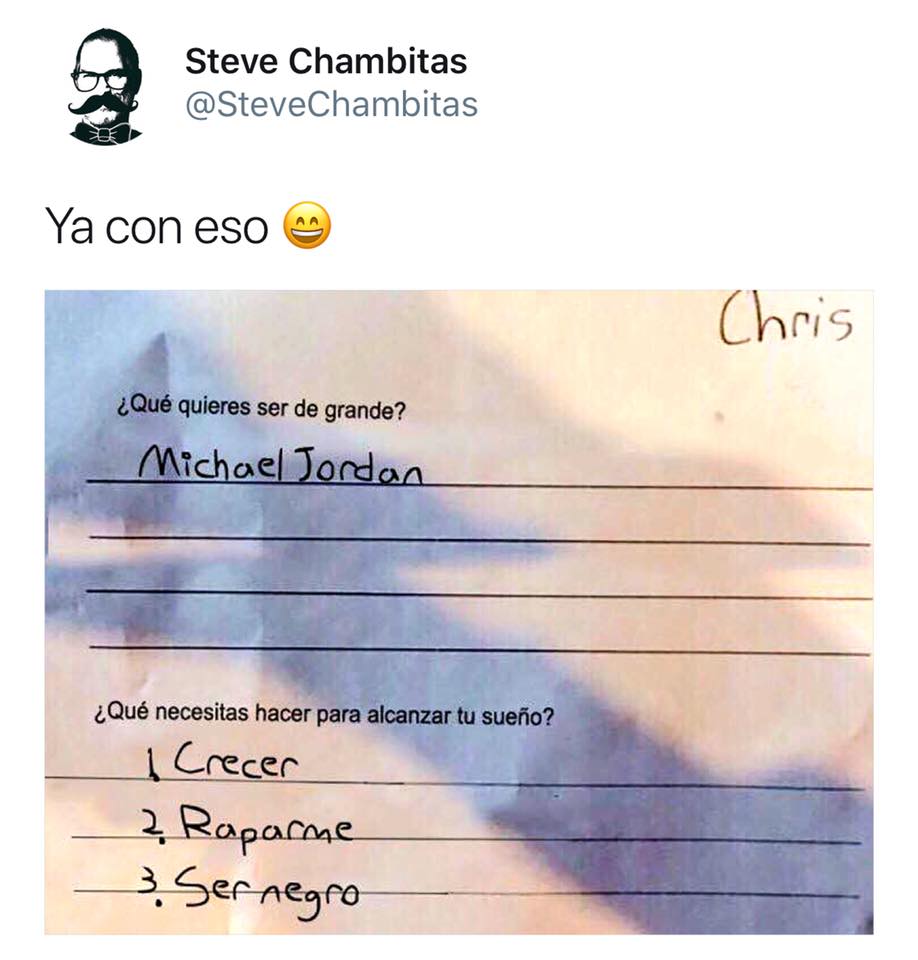 Steve Chambitas
@SteveChambitas
Ya con eso 😄
Chris
¿Qué quieres ser de grande?
Michael Jordan
¿Qué necesitas hacer para alcanzar tu sueño?
1. Crecer
2. Raparme
3. Ser negro